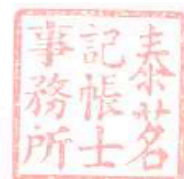 泰茗
記帳士
事務所